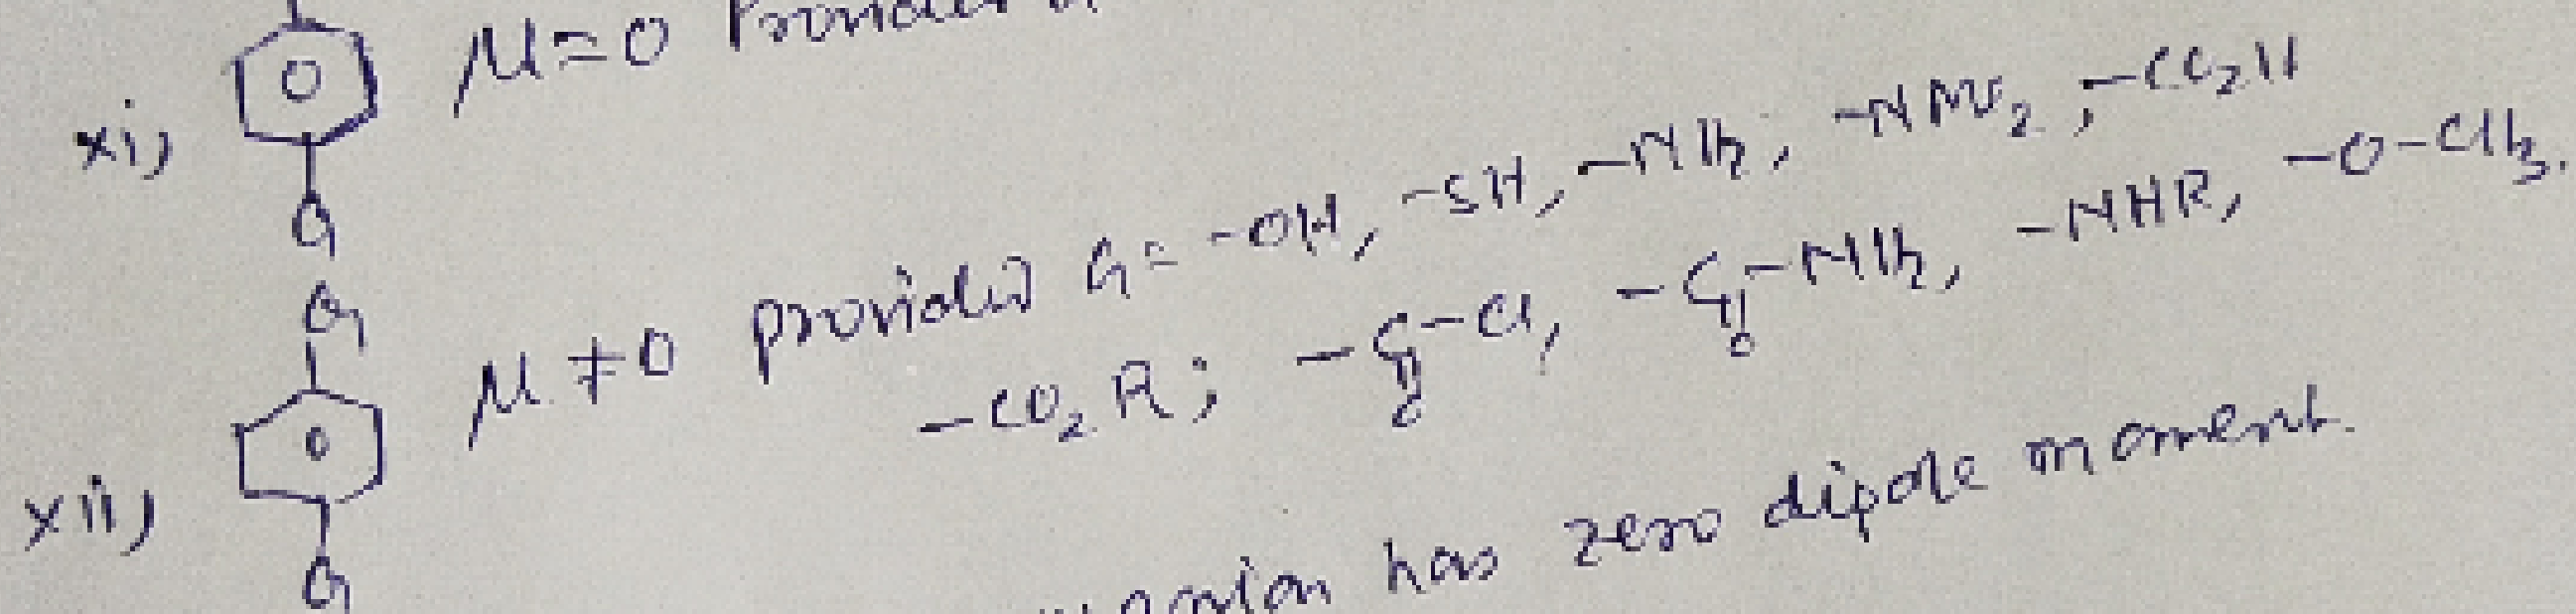 xi) μ=0
G
G
xii) μ≠0 provided G= -OH, -SH, -NH2, -NMe2, -CO2H
-CO2R; -C-Cl, -C-NH2, -NHR, -O-CH3.
O O
G
has zero dipole moment.